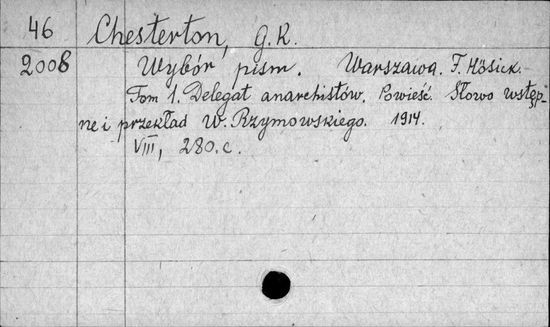 46 Chesterton, G.K.
2008 Wybór pism. Warszawa. F. Hösick.
Tom 1. Delegat anarchistów. Powieść. Słowo wstęp-
ne i przekład W. Rzymowskiego. 1914.
VIII, 280.c.